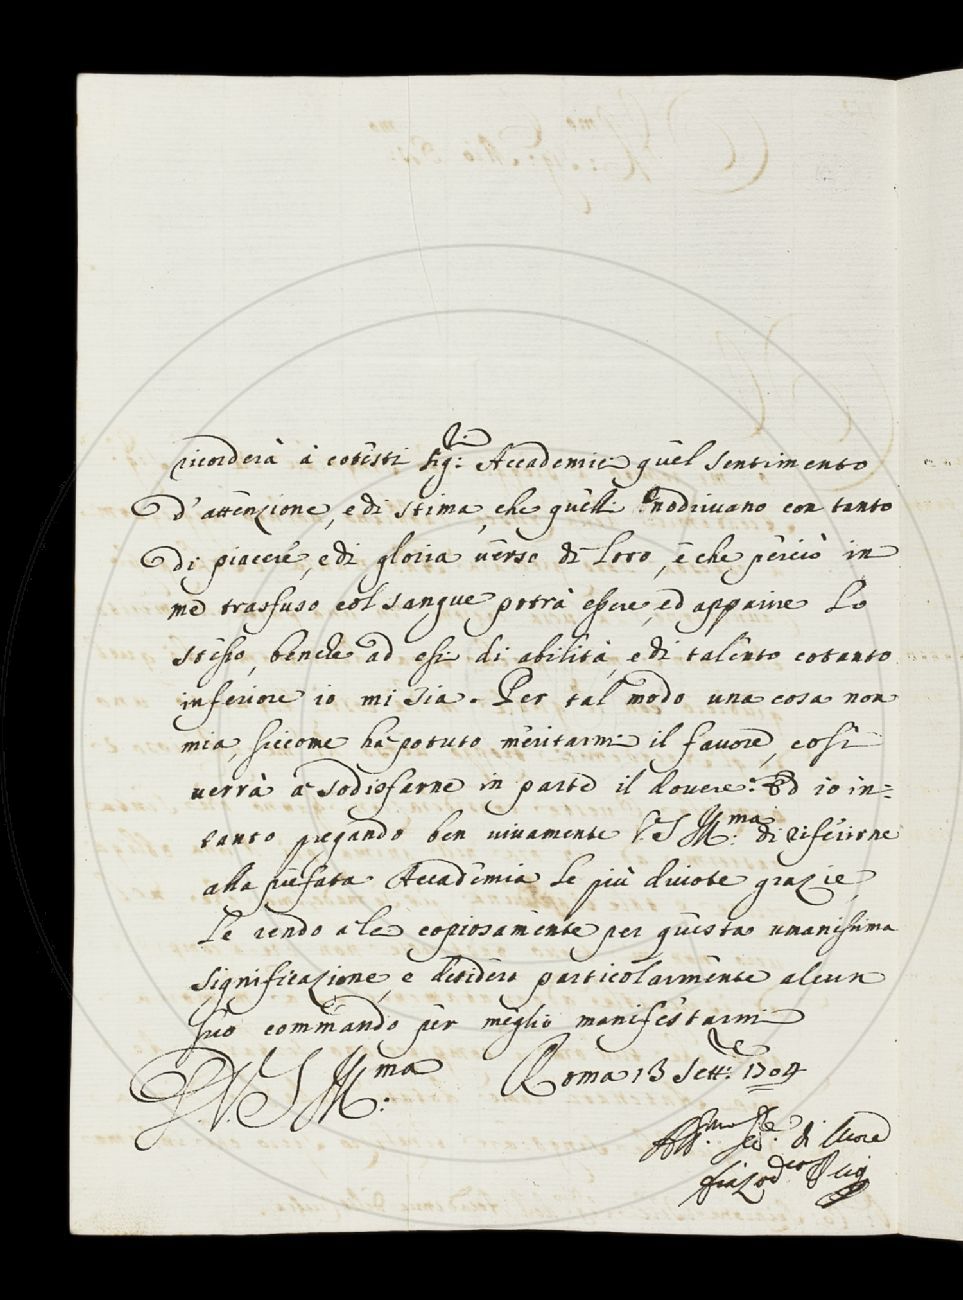 ricorderà à cotesti Sig:ri Accademici quel sentimento
d'attenzione, e di stima, che quelli nodrivano con tanto
di piacere, e di gloria verso di Loro, e che perciò in
me trasfuso col sangue potrà essere, ed apparire Lo
stesso, benche ad essi di abilità, e di talento cotanto
inferiore io mi sia. Per tal modo una cosa non
mia, siccome hà potuto meritarmi il favore, così
verrà a sodisfarne in parte il dovere: Ed io in=
tanto pregando ben vivamente V S Ill:ma di riferirne
alla prefata Accademia Le più divote grazie,
Le rendo a lei copiosamente per questa umanissima
significazione, e desidero particolarmente alcun
suo commando per meglio manifestarmi
D. V. S Ill:ma Roma 13 Sett:re 1704
di Cuore